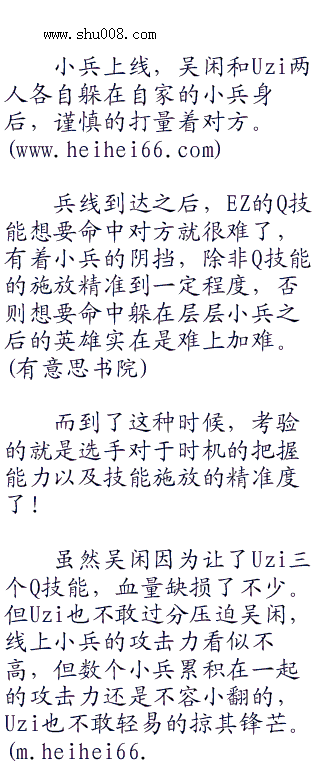 www.shu008.com
小兵上线，吴闲和Uzi两
人各自躲在自家的小兵身
后，谨慎的打量着对方。
(www.heihei66.com)
兵线到达之后，EZ的Q技
能想要命中对方就很难了，
有着小兵的阴挡，除非Q技能
的施放精准到一定程度，否
则想要命中躲在层层小兵之
后的英雄实在是难上加难。
(有意思书院)
而到了这种时候，考验
的就是选手对于时机的把握
能力以及技能施放的精准度
了！
虽然吴闲因为让了Uzi三
个Q技能，血量缺损了不少。
但Uzi也不敢过分压迫吴闲，
线上小兵的攻击力看似不
高，但数个小兵累积在一起
的攻击力还是不容小翻的，
Uzi也不敢轻易的掠其锋芒。
(m.heihei66.